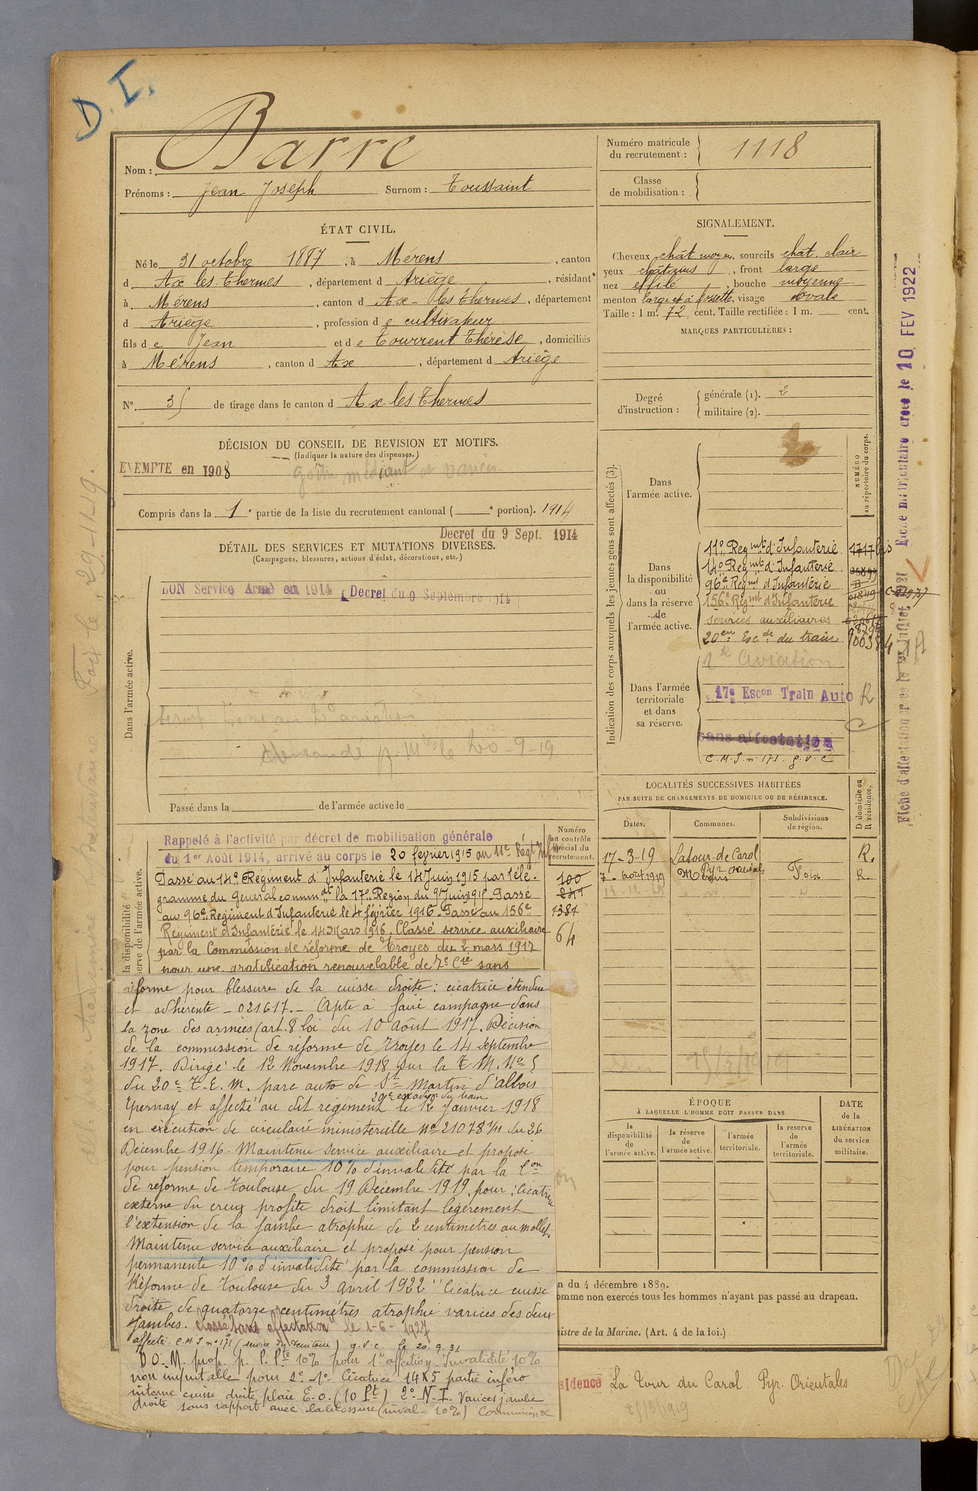 D. I.
Nom : Barre
Prénoms : Jean Joseph Surnom : Toussaint
Numéro matricule du recrutement : 1118
Classe de mobilisation :
ÉTAT CIVIL.
Né le 31 octobre 1887, à Mérens, canton
d Ax les Thermes, département d Ariège, résidant
à Mérens, canton d Ax-les Thermes, département
d Ariège, profession de cultivateur
fils de Jean et de Tourrent Thérèse, domiciliés
à Mérens, canton d Ax, département d Ariège
N° 35 de tirage dans le canton d Ax les Thermes
SIGNALEMENT.
Cheveux chât moyen, sourcils chât. clair
yeux châtains, front large
nez effilé, bouche moyenne
menton large et à fossette, visage ovale
Taille : 1 m. 72 cent. Taille rectifiée : 1 m. cent.
MARQUES PARTICULIÈRES :
Degré d'instruction : générale (1). 2
militaire (2).
DÉCISION DU CONSEIL DE REVISION ET MOTIFS.
(Indiquer la nature des dispenses.)
EXEMPTÉ en 1908
Compris dans la 1e partie de la liste du recrutement cantonal ( e portion). 1914
Decret du 9 Sept. 1914
DÉTAIL DES SERVICES ET MUTATIONS DIVERSES.
(Campagnes, blessures, actions d'éclat, décorations, etc.)
BON Service Armé en 1914 Decret du 9 Septembre 1914
Dans l'armée active.
20-9-19
Passé dans la de l'armée active le
Indication des corps auxquels les jeunes gens sont affectés (3).
NUMÉRO au répertoire du corps.
Dans l'armée active.
Dans la disponibilité ou dans la réserve de l'armée active.
11e Regmt d'Infanterie
14e Regmt d'Infanterie
96e Regmt d'Infanterie
156e Regmt d'Infanterie
services auxiliaires
20em Esc de du train
Aviation
Dans l'armée territoriale et dans sa réserve.
17e Escon Train Auto R
sans affectation
C.M.I. n° 171. g.v.c
Fiche matriculaire créée le 10 FEV 1922
LOCALITÉS SUCCESSIVES HABITÉES
PAR SUITE DE CHANGEMENTS DE DOMICILE OU DE RÉSIDENCE.
D domicile ou R résidence.
Dates. Communes. Subdivisions de région.
17-3-19 Latour de Carol Pyr Orientales R.
7 Août 1919 Mérens Foix R.
Rappelé à l'activité par décret de mobilisation générale
du 1er Août 1914, arrivé au corps le 20 février 1915 au 11e Regt Inf
Numéro au contrôle spécial du recrutement.
100
1381
64
Passé au 14e Régiment d'Infanterie le 14 Juin 1915 par télé-
gramme du General commdt la 17e Région du 9 Juin 1915. Passé
au 96e Regiment d'Infanterie le 4 février 1916. Passé au 156e
Regiment d'Infanterie le 14 Mars 1916. Classé service auxiliaire
par la Commission de réforme de Troyes du 2 mars 1917
pour une gratification renouvelable de 7e Cie sans
réforme pour blessure de la cuisse droite : cicatrice étendue
et adhérente - 021617. - Apte à faire campagne dans
la zone des armées (art. 8 loi du 10 Août 1917. Décision
de la commission de réforme de Troyes le 14 septembre
1917. Dirigé le 12 Novembre 1918 sur la T.M. N° 5
du 20e T.E.M. parc auto de St Martin d'ablois
20e escadron du train
Epernay et affecté au dit régiment le 12 Janvier 1918
en exécution de circulaire ministerielle N° 21078 du 26
Décembre 1916. Maintenu service auxiliaire et proposé
pour pension temporaire 10% d'invalidité par la Con
de réforme de Toulouse du 19 Decembre 1919 pour : Cicatrice
externe du creux poplité droit limitant légèrement
l'extension de la jambe atrophie de 2 centimètres au mollet.
Maintenu service auxiliaire et proposé pour pension
permanente 10% d'invalidité par la commission de
Réforme de Toulouse du 3 avril 1922 "Cicatrice cuisse
droite de quatorze centimètres atrophie varices des deux
jambes. Classé sans affectation le 1-6-1927
affecté C.M.I n° 171 (service du territoire) g.v.c le 20.9.31
DO. M. prop. p. P. Pte 10% pour 1re affection. Invalidité 10%
non imputable pour 2e. 1° Cicatrice 14x5 partie inféro
interne cuisse droite plaie E.O. (10 Pt) 2° N.I. Varices jambe
droite sans rapport avec la blessure (inval. 10%)
ÉPOQUE
À LAQUELLE L'HOMME DOIT PASSER DANS
DATE de la LIBÉRATION du service militaire.
la disponibilité de l'armée active.
la réserve de l'armée active.
l'armée territoriale.
la réserve de l'armée territoriale.
n du 4 décembre 1889.
omme non exercés tous les hommes n'ayant pas passé au drapeau.
nistre de la Marine. (Art. 4 de la loi.)
sidence La Tour du Carol Pyr. Orientales
25/3/1919